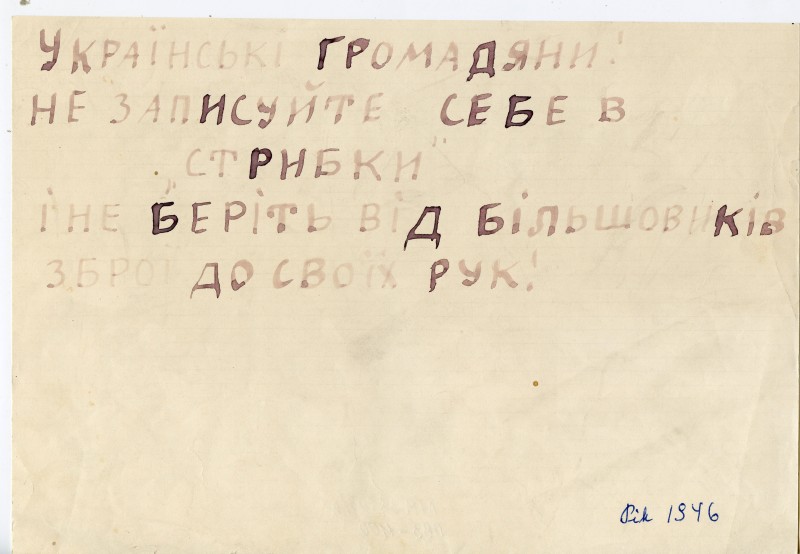 УКРАЇНСЬКІ ГРОМАДЯНИ!
НЕ ЗАПИСУЙТЕ СЕБЕ В
„СТРИБКИ"
І НЕ БЕРІТЬ ВІД БІЛЬШОВИКІВ
ЗБРОЇ ДО СВОЇХ РУК!
Рік 1946